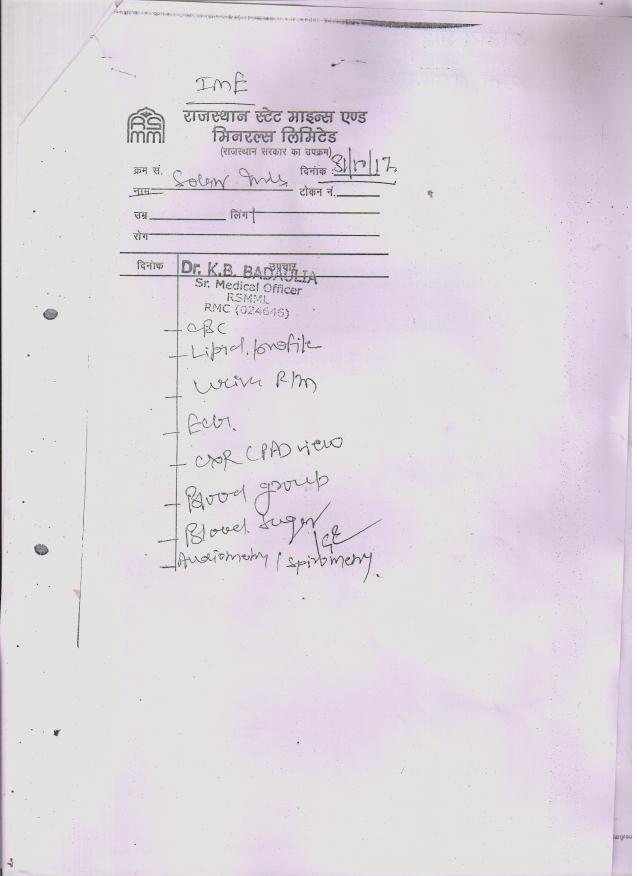 IME
RS
MM
राजस्थान स्टेट माइन्स एण्ड
मिनरल्स लिमिटेड
(राजस्थान सरकार का उपक्रम)
क्रम सं. दिनांक :
नाम टोकन नं.
उम्र लिंग
रोग
दिनांक उपचार
Dr. K.B. BADAULIA
Sr. Medical Officer
RSMML
RMC (024646)
CBC
Lipid profile
Urine R/M
ECG.
CXR (PA) view
Blood group
Blood Sugar
Audiometry / Spirometry.